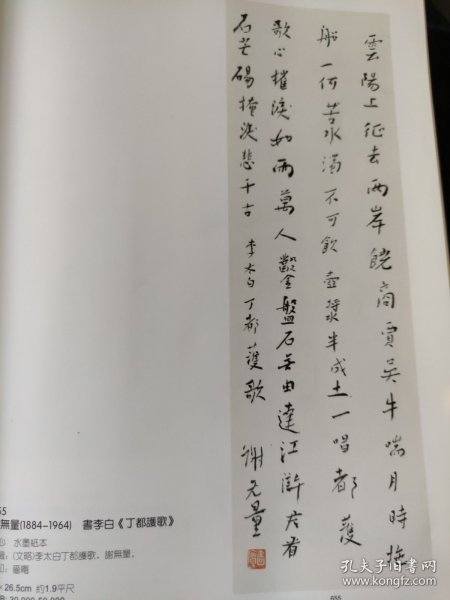 雲陽上征去兩岸饒商賈吳牛喘月時拖
船一何苦水濁不可飲壺漿半成土一唱都護
歌心摧淚如雨萬人鑿盤石无由達江滸君看
石芒碭掩淚悲千古 李太白丁都護歌 謝无量
55
無量(1884-1964) 書李白《丁都護歌》
水墨紙本
(文略)李太白丁都護歌，謝無量。
26.5cm 約1.9平尺
655
孔夫子旧书网